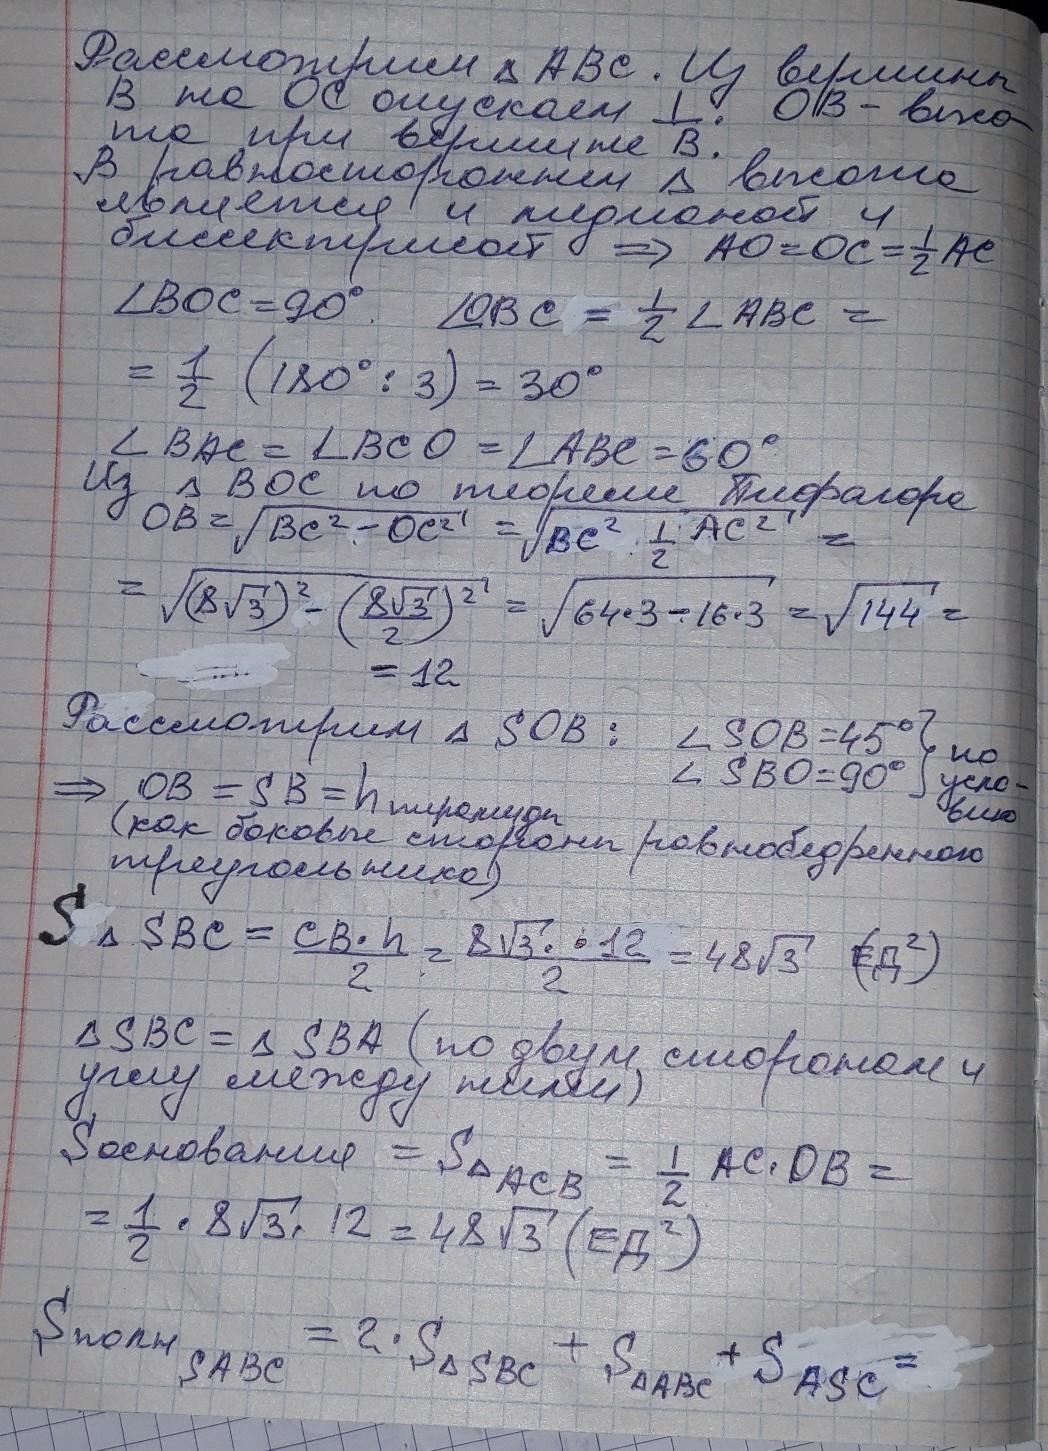 Рассмотрим △ ABC. Из вершины
B на OC опускаем ⊥. OB - высо-
та при вершине B.
В равностороннем △ высота
является и медианой и
биссектрисой ⇒ AO=OC=1/2 AC
∠BOC=90°. ∠OBC = 1/2 ∠ABC =
= 1/2 (180° : 3) = 30°
∠BAC = ∠BCO = ∠ABC = 60°
Из △ BOC по теореме Пифагора
OB = √(BC² - OC²) = √(BC² · 1/2 AC²) =
= √((8√3)² - (8√3/2)²) = √(64·3 - 16·3) = √144 =
= 12
Рассмотрим △ SOB : ∠SOB = 45° } по
∠SBO = 90° } усло-
вию
⇒ OB = SB = h пирамиды
(как боковые стороны равнобедренного
треугольника)
S △ SBC = CB·h/2 = 8√3 · 12/2 = 48√3 (ЕД²)
△SBC = △ SBA (по двум сторонам и
углу между ними)
Sоснования = S△ACB = 1/2 AC·OB =
= 1/2 · 8√3 · 12 = 48√3 (ЕД²)
Sполн SABC = 2·S△SBC + S△ABC + S ASC =